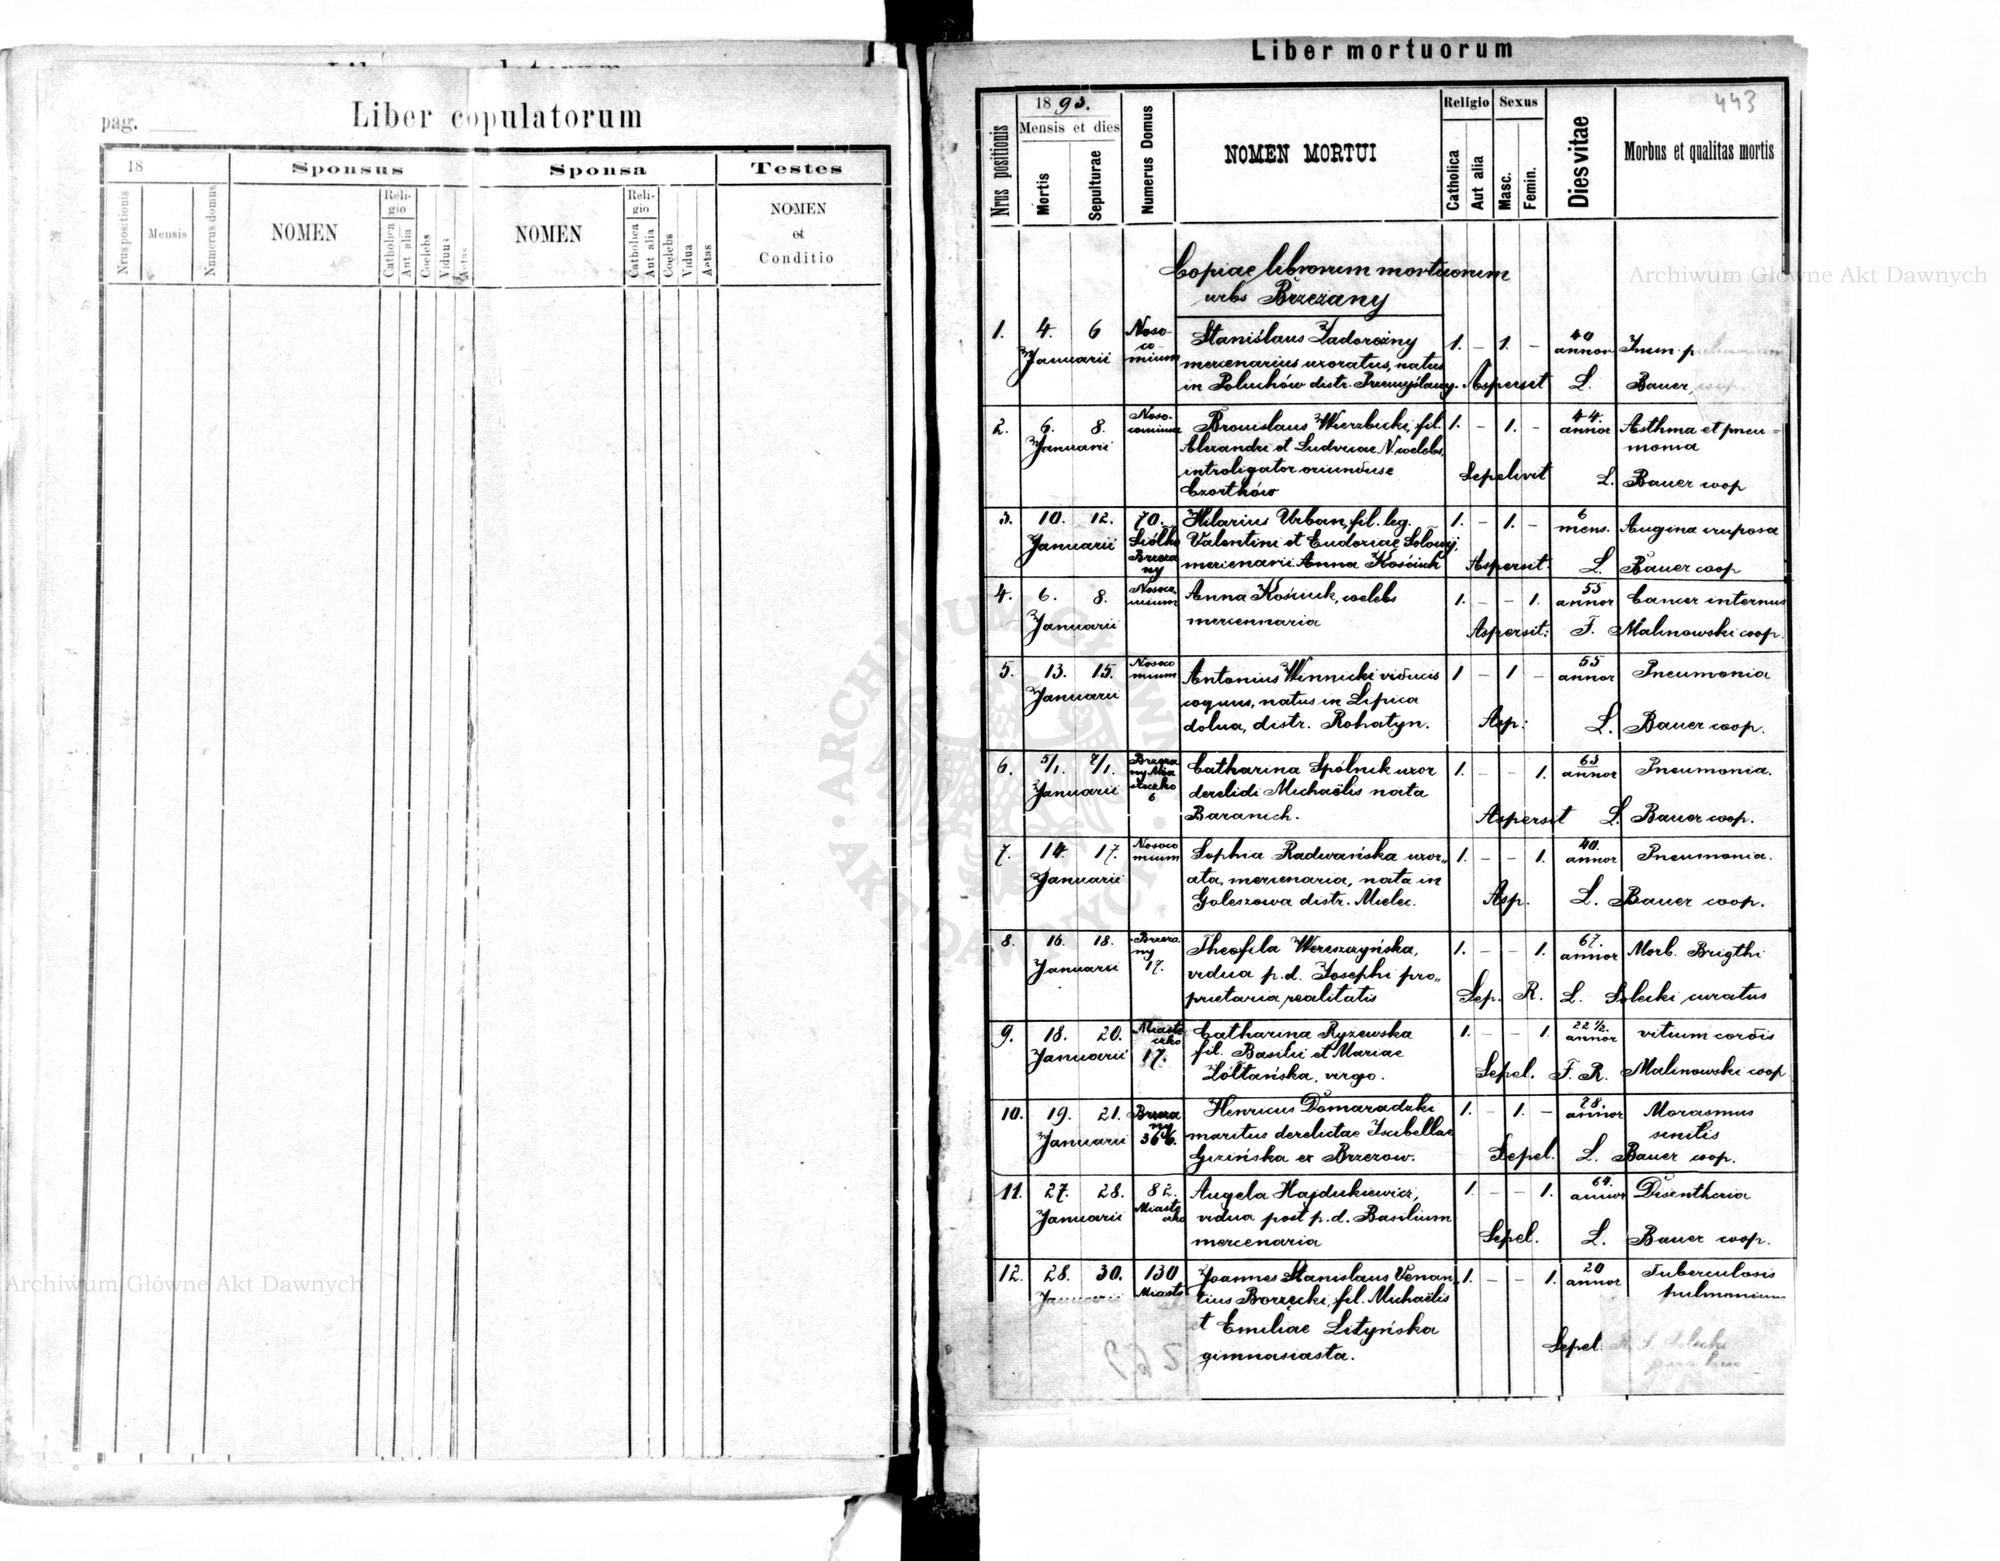 pag.
Liber copulatorum
18
Sponsus
Sponsa
Testes
Nrus positionis
Mensis
Numerus domus
NOMEN
Reli-
gio
Catholica
Aut alia
Coelebs
Viduus
Aetas
NOMEN
Reli-
gio
Catholica
Aut alia
Coelebs
Vidua
Aetas
NOMEN
et
Conditio
Liber mortuorum
443
Nrus positionis
1893.
Mensis et dies
Mortis
Sepulturae
Numerus Domus
NOMEN MORTUI
Religio
Catholica
Aut alia
Sexus
Masc.
Femin.
Dies vitae
Morbus et qualitas mortis
Copiae librorum mortuorum
urbs Brzeżany
1. 4. 6 Noso-
co-
mium
Januarii
Stanislaus Zadorożny
mercenarius uxoratus, natus
in Poluchów distr. Przemyślany.
1. - 1. -
40
annor
Aspersit L. Bauer coop.
2. 6. 8. Noso-
comium
Januarii
Bronislaus Wierzbicki, fil.
Alexandri et Ludvicae N. coelebs,
introligator oriundus e
Czortków
1. - 1. -
44.
annor
Asthma et pneu-
monia
Sepelivit L. Bauer coop
3. 10. 12. 70.
Januarii
Siółko
Brzeża
ny
Hilarius Urban, fil. leg.
Valentini et Eudoxiae Sołowij,
mercenarii Anna Kościuk
1. - 1. -
6
mens.
Angina cruposa
Aspersit L. Bauer coop
4. 6. 8. Nosoco
mium
Januarii
Anna Kościuk, coelebs
mercennaria
1. - - 1.
55
annor
Cancer internus
Aspersit: F. Malinowski coop.
5. 13. 15. Nosoco
mium
Januarii
Antonius Winnicki viduus
coquus, natus in Lipica
dolna, distr. Rohatyn.
1 - 1 -
55
annor
Pneumonia
Asp: L. Bauer coop.
6. 5/1. 7/1. Brzeża
ny Mia
steczko
6
Januarii
Catharina Spólnik uxor
derelicti Michaëlis nata
Baranich.
1. - - 1.
63
annor
Pneumonia.
Aspersit L. Bauer coop.
7. 14. 17. Nosoco
mium
Januarii
Sophia Radwańska uxor„
ata, mercenaria, nata in
Goleszowa distr. Mielec.
1. - - 1.
40.
annor
Pneumonia.
Asp. L. Bauer coop.
8. 16. 18. Brzeża
ny
17.
Januarii
Theofila Wereszczyńska,
vidua p. d. Josephi pro„
prietaria realitatis
1. - - 1.
67.
annor
Morb. Brigthi
Sep. R. L. Solecki curatus
9. 18. 20. Miaste
czko
17.
Januarii
Catharina Ryzewska
fil. Basilii et Mariae
Żółtańska, virgo.
1. - - 1.
22 1/2.
annor
vitium cordis
Sepel. F. R. Malinowski coop
10. 19. 21. Brzeża
ny
Januarii
Henricus Domaradzki
maritus derelictae Isabellae
Giżińska ex Brzezow.
1. - 1. -
78.
annor
Morasmus
senilis
Sepel. L. Bauer coop.
11. 27. 28. 82.
Miaste
czko
Januarii
Angela Hajdukiewicz,
vidua post p. d. Basilium
mercenaria
1. - - 1.
64.
annor
Disentheria
Sepel. L. Bauer coop.
12. 28. 30. 130
Miaste
Januarii
Joannes Stanislaus Venan„
tius Borzęcki, fil. Michaëlis
t Emiliae Lityńska
gimnasiasta.
1. - - 1.
20
annor
Tuberculosis
pulmonum
Sepel.
Archiwum Główne Akt Dawnych
Archiwum Główne Akt Dawnych
ARCHIWUM GŁÓWNE AKT DAWNYCH